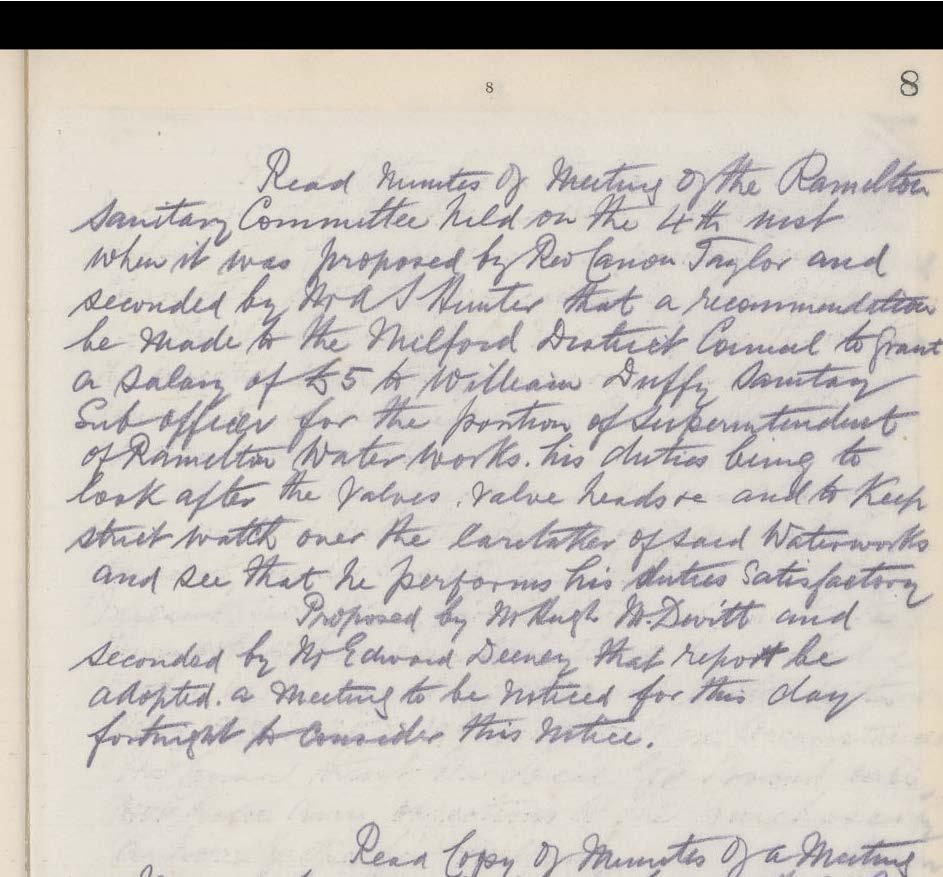 8
8
Read Minutes Of Meeting Of the Ramelton
Sanitary Committee held on the 4th inst
when it was proposed by Rev Canon Taylor and
seconded by Mr A S Hunter that a recommendation
be made to the Milford District Council to grant
a salary of £5 to William Duffy Sanitary
Sub officer for the portion of Superintendent
of Ramelton Water Works. his duties being to
look after the valves, valve heads &c and to Keep
strict watch over the Caretaker of said Waterworks
and see that he performs his duties Satisfactory
Proposed by Mr Hugh McDevitt and
seconded by Mr Edward Deeney that report be
adopted. a meeting to be noticed for this day
fortnight to consider this Notice.
Read Copy Of Minutes Of a Meeting